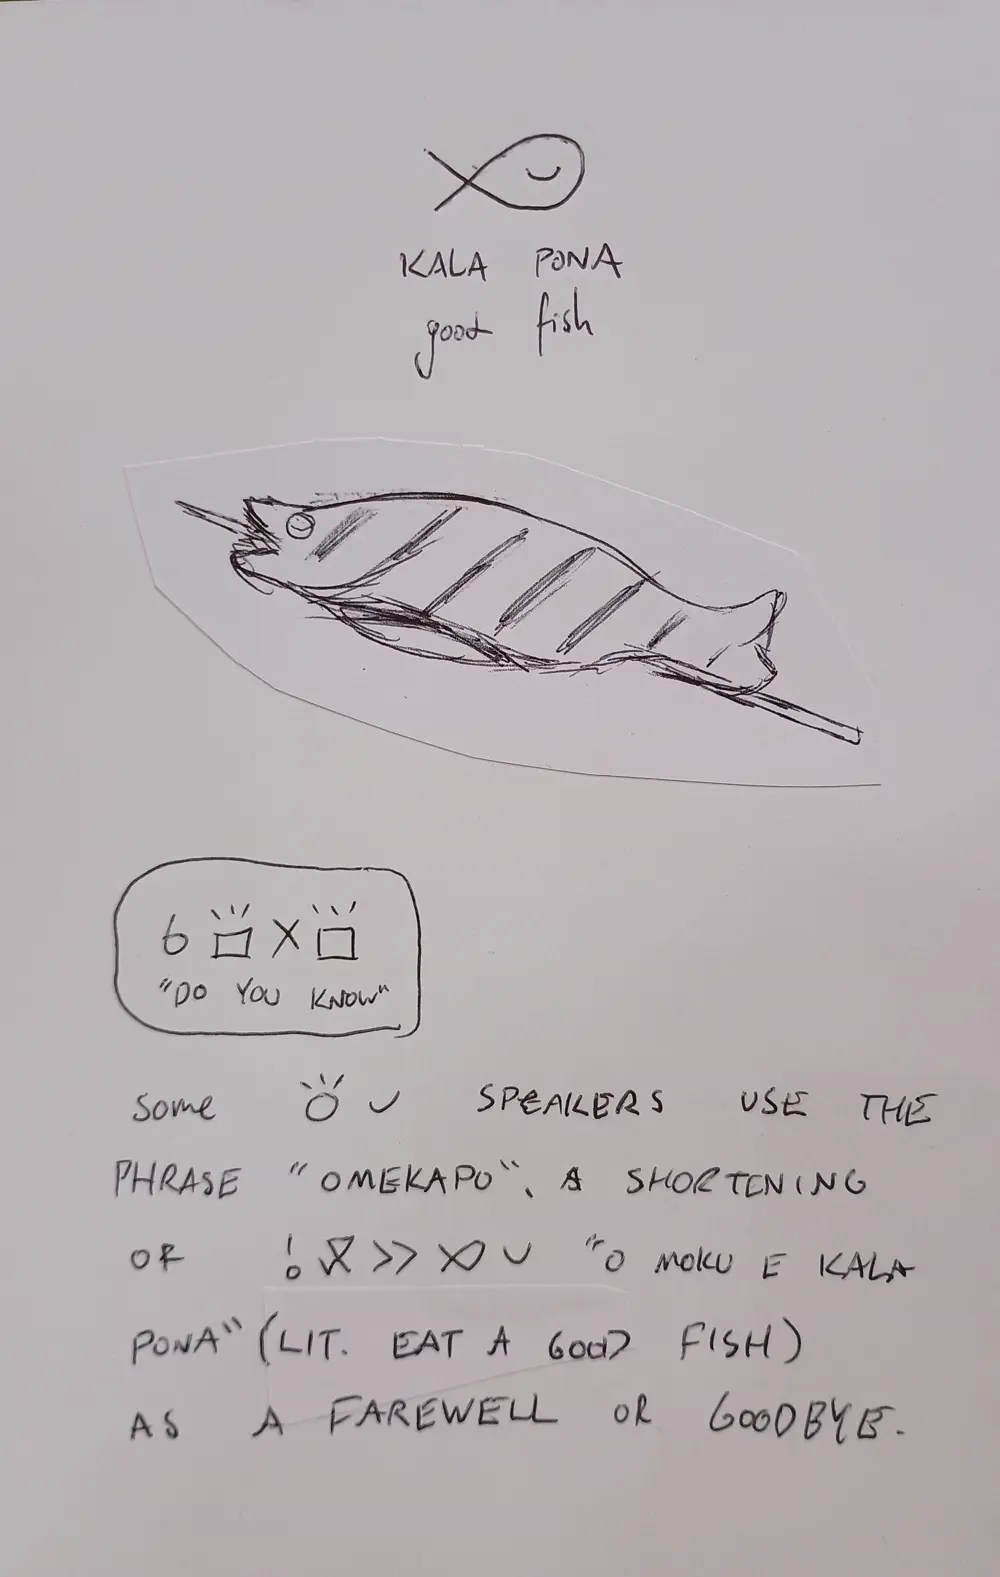 KALA PONA
good fish
"DO YOU KNOW"
Some SPEAKERS USE THE
PHRASE "OMEKAPO", A SHORTENING
OF "O MOKU E KALA
PONA" (LIT. EAT A GOOD FISH)
AS A FAREWELL OR GOODBYE.